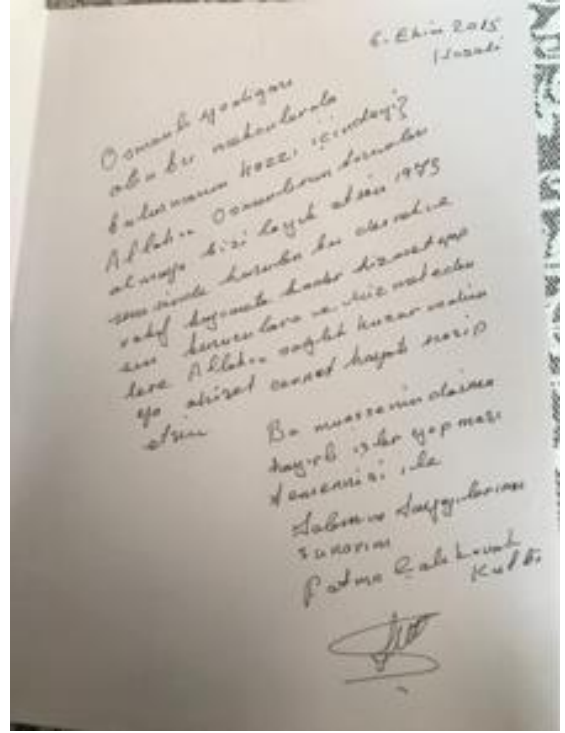 6. Ekim 2015
Osmanlı yadigarı
olan bu mekanlarda
bulunmanın hazzı içindeyiz
Allah'ın Osmanlının torunları
olmaya bizi layık etsin 1973
senesinde kurulan bu dernek ve
vakıf kıyamete kadar hizmet yap
sın kurucularına ve hizmet eden
lere Allah'ın sağlık huzur
ahiret cennet hayatı nasip
etsin
Bu müessenin daima
hayırlı işler yapması
temennisi ile
Selam ve saygılarımı
sunarım
Fatma